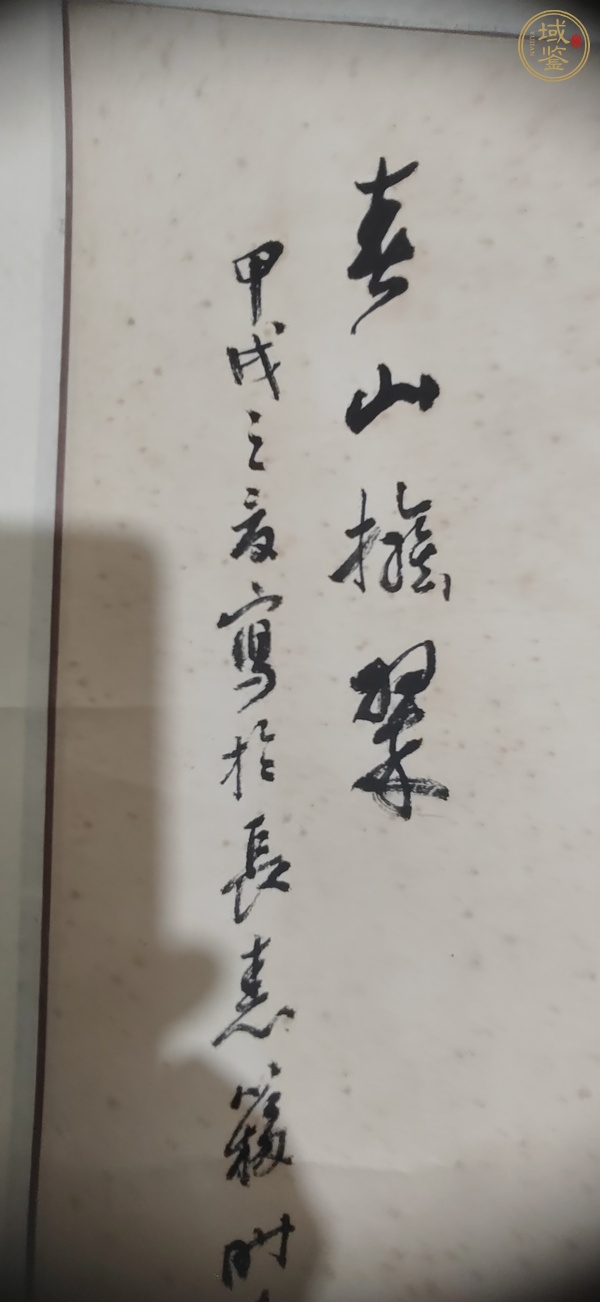 域鉴
春山擁翠
甲戌之夏寫於長簃时